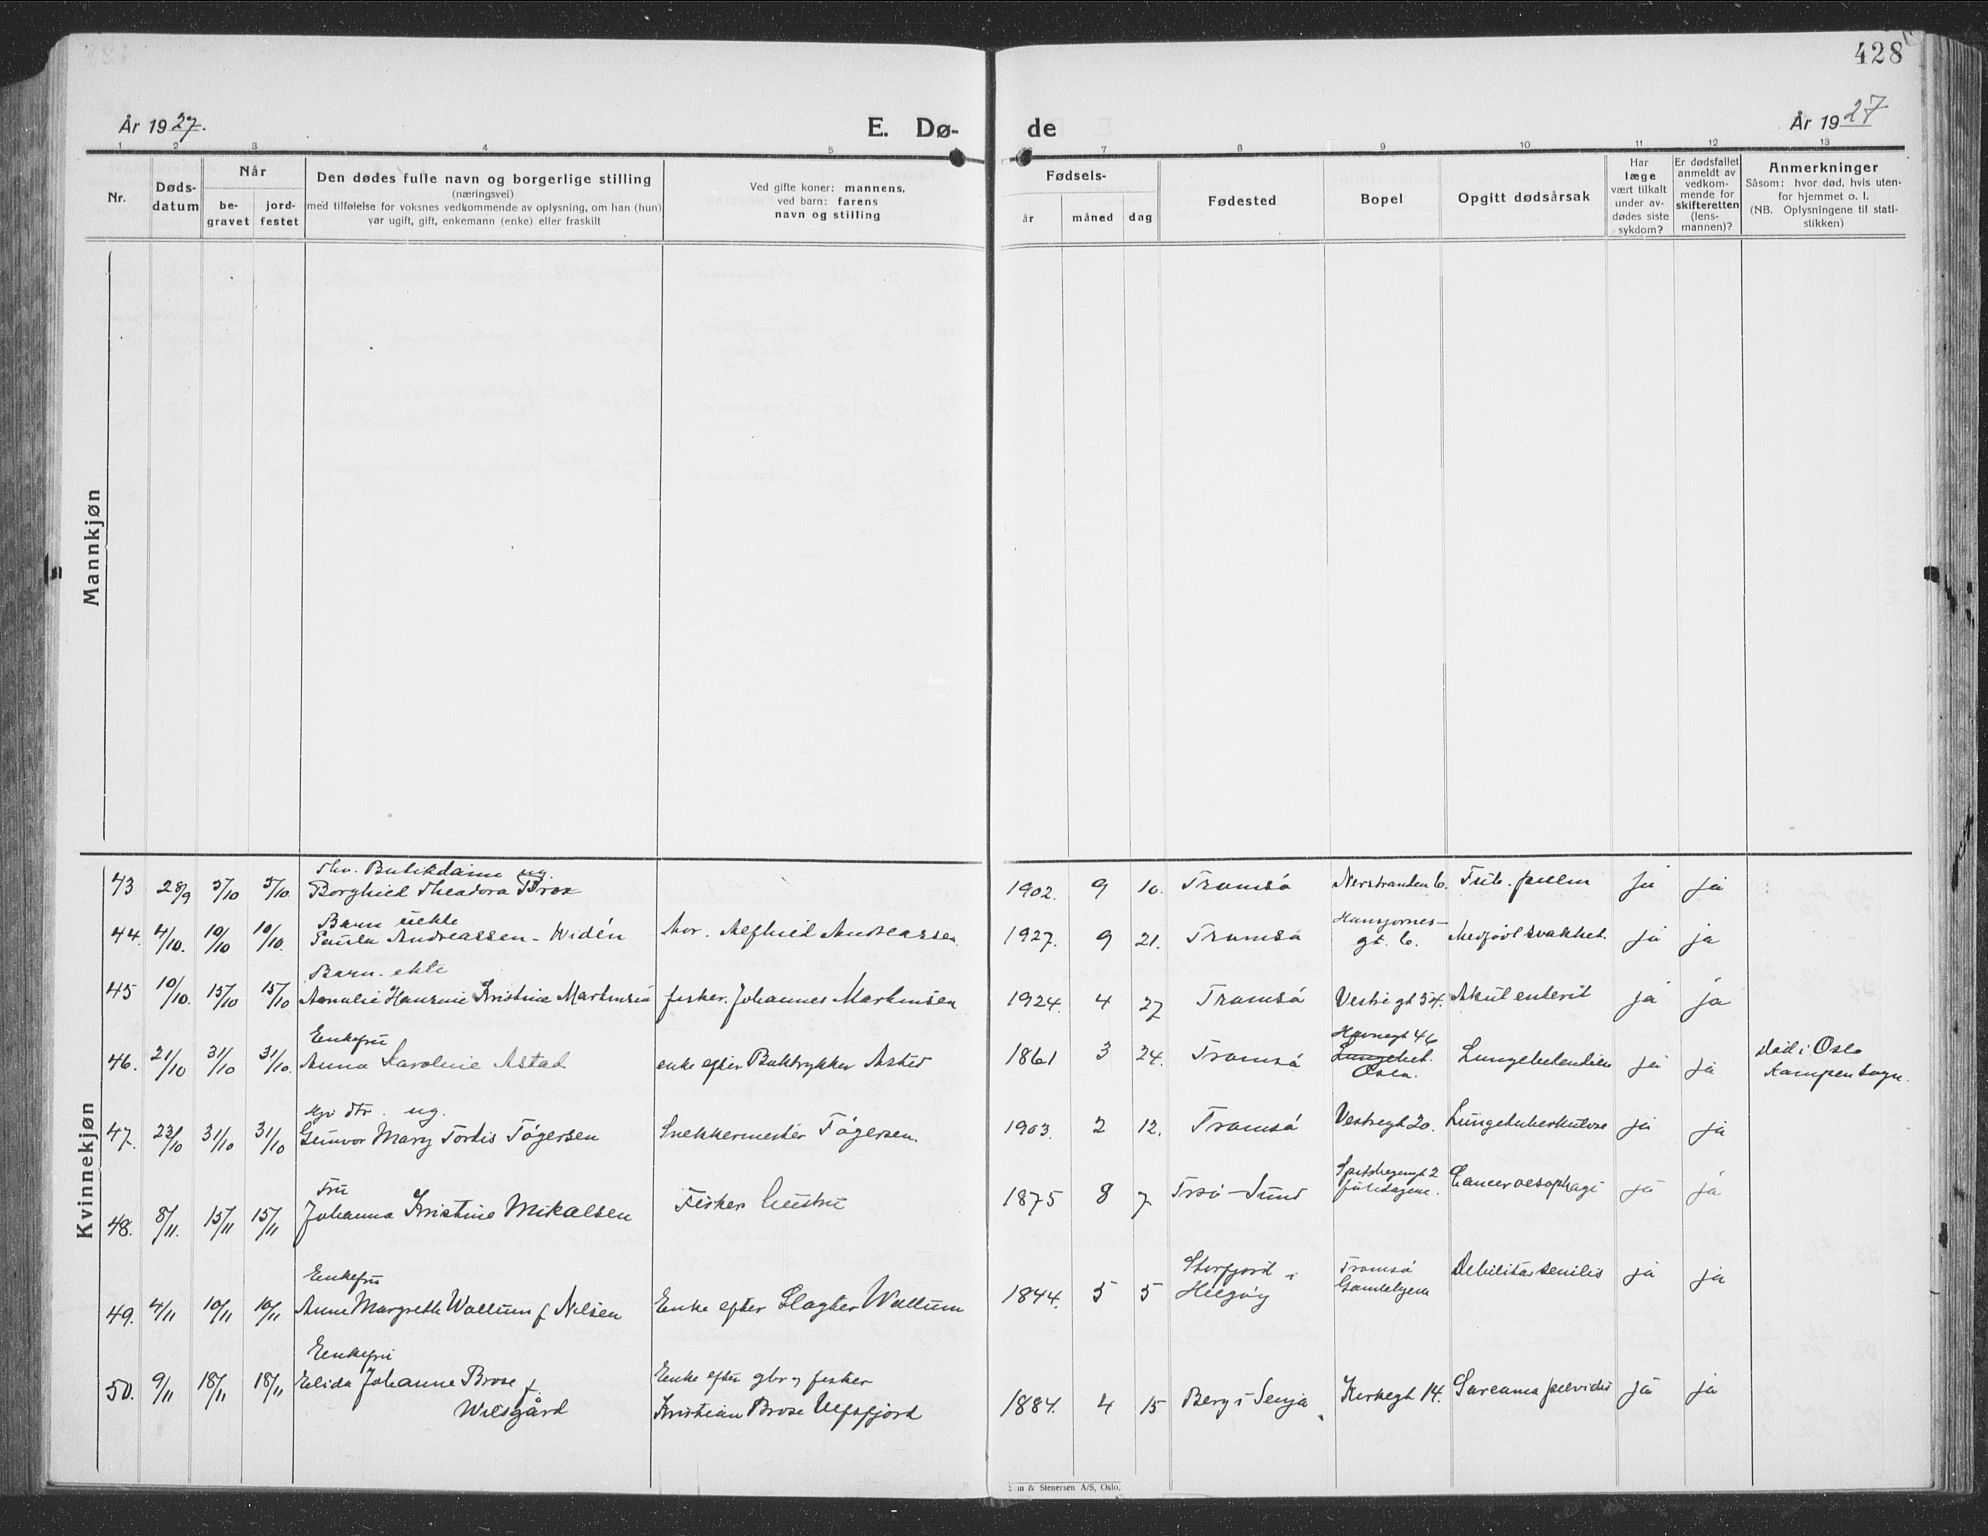 428
År 1927.
E. Dø-
de
År 1927
1 2 3 4 5 7 8 9 10 11 12 13
Nr.
Døds-
datum
Når
be-
gravet
jord-
festet
Den dødes fulle navn og borgerlige stilling
(næringsvei)
med tilføielse for voksnes vedkommende av oplysning, om han (hun)
var ugift, gift, enkemann (enke) eller fraskilt
Ved gifte koner: mannens,
ved barn: farens
navn og stilling
Fødsels-
år
måned
dag
Fødested
Bopel
Opgitt dødsårsak
Har
læge
vært tilkalt
under av-
dødes siste
sykdom?
Er dødsfallet
anmeldt av
vedkom-
mende for
skifteretten
(lens-
mannen)?
Anmerkninger
Såsom: hvor død, hvis uten-
for hjemmet o. l.
(NB. Oplysningene til stati-
stikken)
Mannkjøn
Kvinnekjøn
Butikdame ug.
43 28/9 5/10 5/10. Borghild Theodora Brox 1902. 9 10. Tromsø Nerstranden 6. Tub. pulm ja ja
Barn uekte
Hansjordnes-
44. 4/10. 10/10 10/10. Paula Andreassen - Widén Mor. Alfhild Andreassen 1927. 9 21. Tromsø gt. 6. Medfødt svakhet. ja ja
Barn. ekte
45 10/10. 15/10 15/10 Amalie Hansine Kristine Martinsen fisker. Johannes Martinsen 1924. 4 27 Tromsø Vestregt 54. Akut enterit ja ja
Enkefru
Havnegt 46
46. 21/10 31/10 31/10. Anna Karoline Astad enke efter Boktrykker Astad 1861 3 24. Tromsø Oslo. ja ja død i Oslo
Kampen sogn.
dtr. ug.
47. 23/10 31/10 31/10 Gunvor Mary Tordis Tøgersen Snekkermester Tøgersen. 1903. 2 12. Tromsø Vestregt 20. Lungetuberkulose ja ja
Fru
48. 8/11. 15/11 15/11 Johanna Kristine Mikalsen Fisker 1875 8 7 Trsø-Sund Spitsbergengt 2 Cancer oesophagi ja ja
Enkefru
49. 4/11 10/11 10/11 Anne Margreth Wollum f Nilsen Enke efter Slagter Wollum 1844. 5 5 Storfjord i
Helgøy Tromsø
Gamlehjem Debilitas senilis ja ja
Enkefru
50. 9/11 18/11 18/11 Elida Johanne Brose f.
Wilsgård Enke efter gbr og fisker
Kristian Brose Ulfsfjord 1884. 4 15 Berg i Senja Kirkegt 14. Sarcoma pelvidis ja ja
& Stenersen A/S, Oslo.